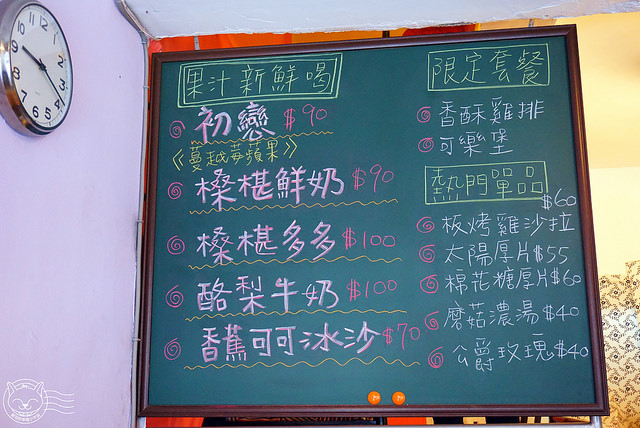 果汁新鮮喝
初戀 $90
《蔓越莓蘋果》
桑椹鮮奶 $90
桑椹多多 $100
酪梨牛奶 $100
香蕉可可冰沙 $70
限定套餐
香酥雞排
可樂堡
熱門單品
板烤雞沙拉 $60
太陽厚片 $55
棉花糖厚片 $60
磨菇濃湯 $40
公爵玫瑰 $40
11
12
1
2
3
5
6
7
8
9
10